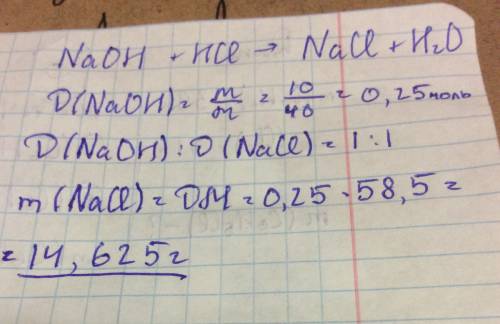 NaOH + HCl → NaCl + H₂O
D(NaOH) = m/m = 10/40 = 0,25 моль
D(NaOH) : D(NaCl) = 1 : 1
m(NaCl) = DM = 0,25 · 58,5 =
= 14,625 г